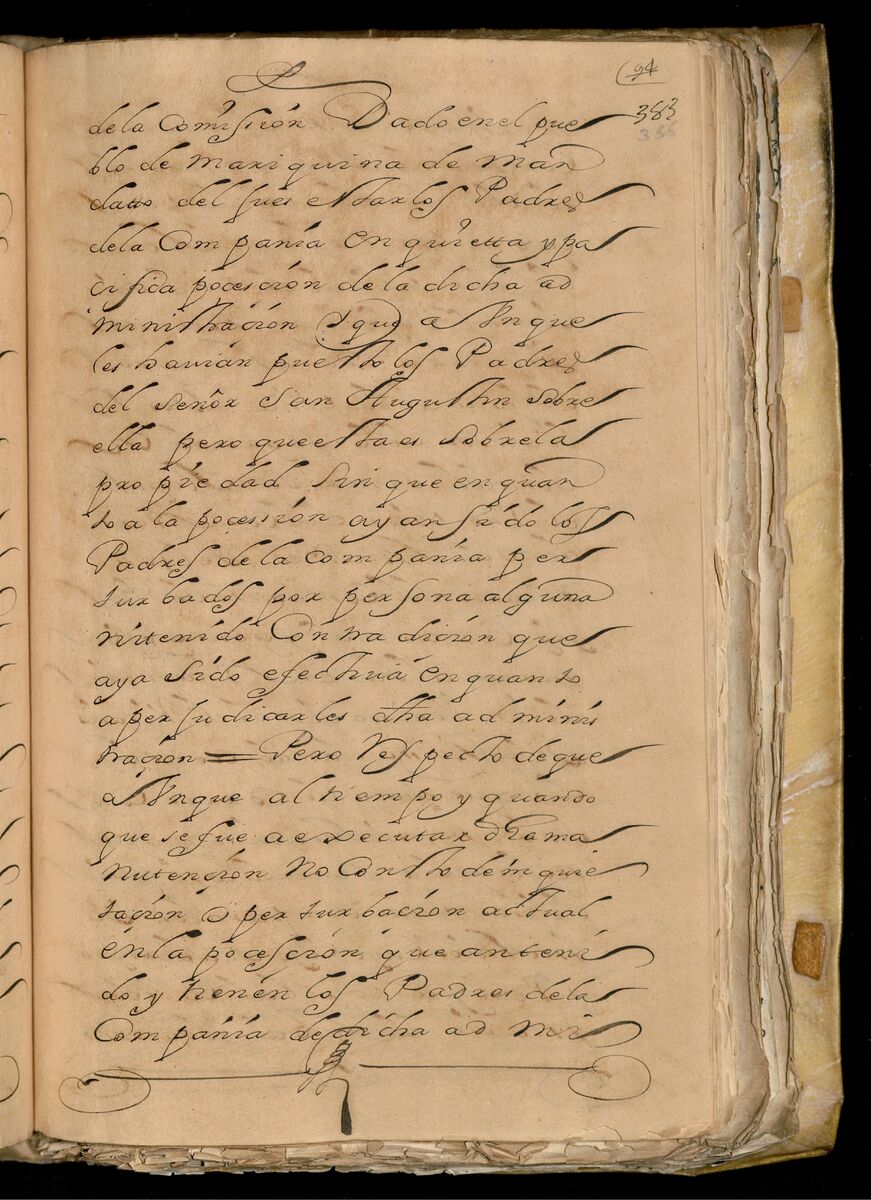 94
383
355
dela Comission Dado en el pue
blo de Mariquina de Man
datto del Jues estar los Padres
dela Compañia en quietta y pa
cifida pocescion de la dicha ad
ministracion y que aunque
les havian puesto los Padres
del señor san Augustin sobre
ella pero que esta es sobre la
propiedad sin que en quan
to a la pocession ayan sido los
Padres de la Compañia per
turbados por persona alguna
ni tenido Contradicion que
aya sido efectiua en quanto
a perjudicarles dha adminis
tracion = Pero Respecto de que
aunque al tiempo y quando
que se fue a executar dha ma
nutencion no Consto de inquie
tacion o perturbacion actual
en la pocescion que an teni
do y tienen los Padres de la
Compañia de dicha admi